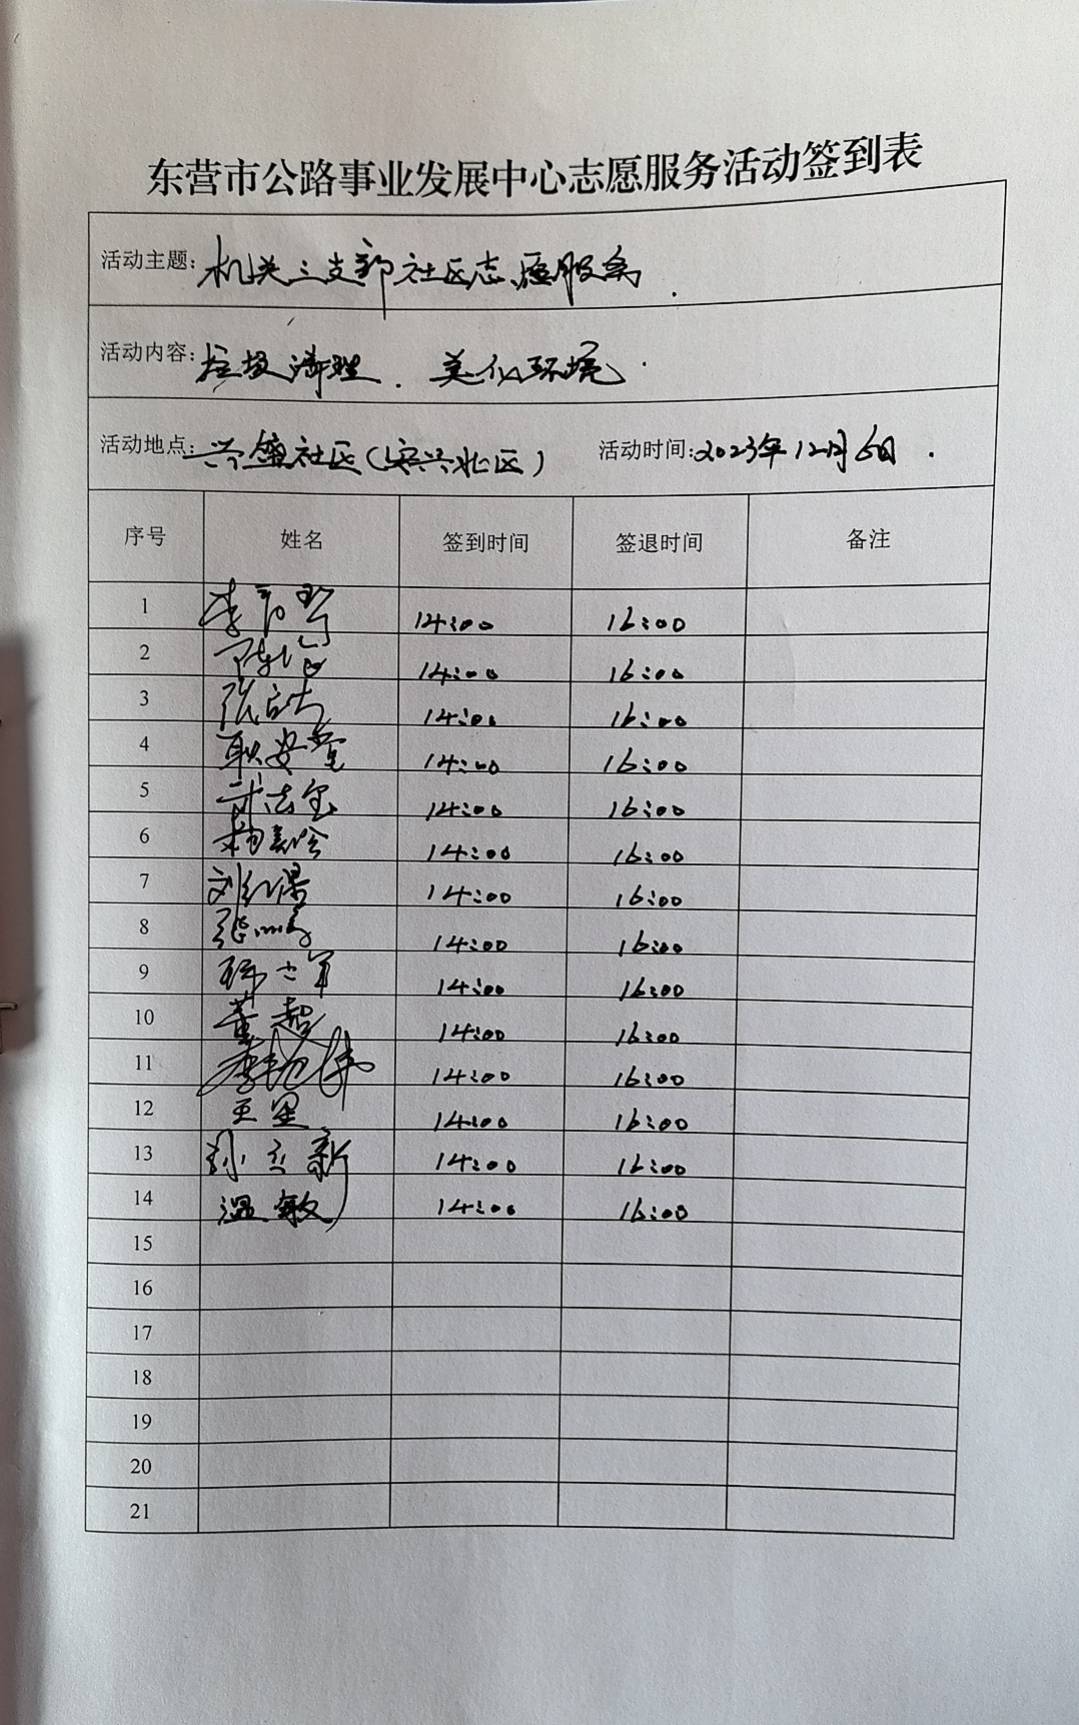 东营市公路事业发展中心志愿服务活动签到表
活动主题: 机关三支部社区志愿服务.
活动内容: 垃圾清理. 美化环境.
活动地点: 兴盛社区(安兴北区) 活动时间:2023年12月6日.
序号 姓名 签到时间 签退时间 备注
1 14:00 16:00
2 14:00 16:00
3 14:00 16:00
4 耿安堂 14:00 16:00
5 14:00 16:00
6 14:00 16:00
7 14:00 16:00
8 14:00 16:00
9 14:00 16:00
10 董超 14:00 16:00
11 14:00 16:00
12 王星 14:00 16:00
13 孙立新 14:00 16:00
14 温敏 14:00 16:00
15
16
17
18
19
20
21